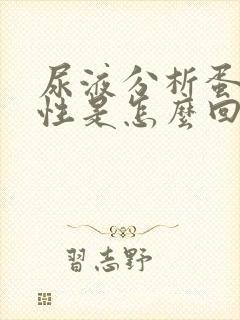 尿液分析蛋
性是怎麼回
習志野